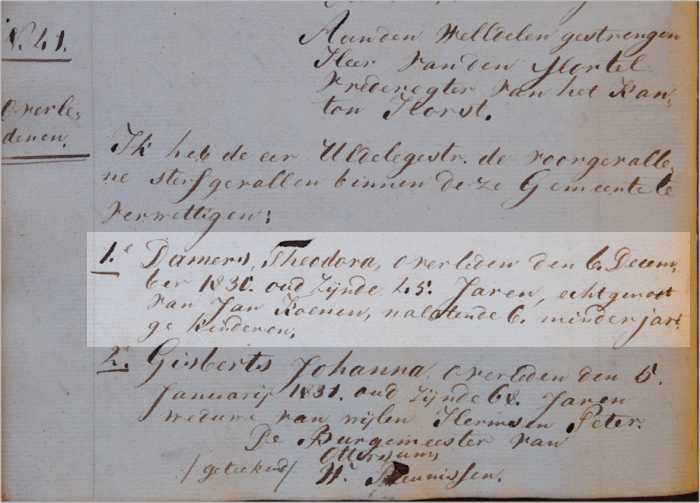 N. 41.
Overle-
denen.
Aan den Welldelen gestrengen
Heer van den Mortel
Vrederegter van het Kan-
ton Horst.
Ik heb de eer UldeleGestr. de voorgevalle-
ne sterfgevallen binnen deze Gemeente te
verwettigen:
1.e Damers, Theodora, overleden den 6. Decem-
ber 1830. oud zijnde 45. Jaren, echtgenoot
van Jan Koenen, nalatende 6. minderjari-
ge kinderen;
2. Gisberts Johanna. overleden den 5.
Januarij 1831. oud zijnde 68. Jaren
weduwe van wijlen Hermsen Peter.
De Burgemeester van
Ottersum,
/geteekend/ W. Theunissen.